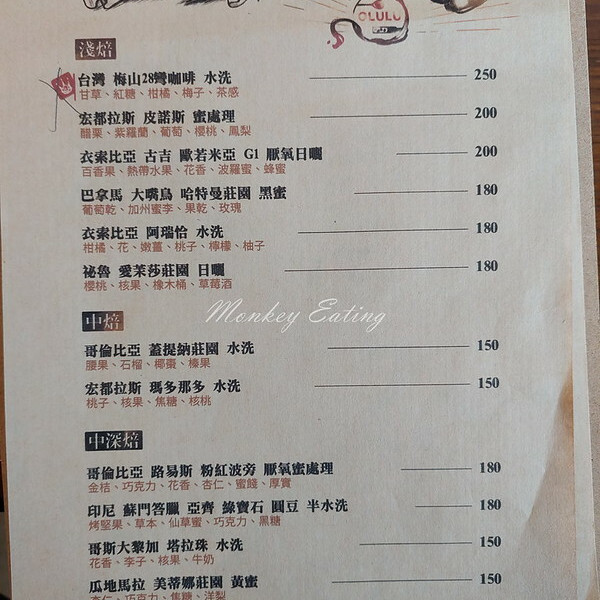 OLULU
淺焙
台灣 梅山28彎咖啡 水洗 250
甘草、紅糖、柑橘、梅子、茶感
宏都拉斯 皮諾斯 蜜處理 200
醋栗、紫羅蘭、葡萄、櫻桃、鳳梨
衣索比亞 古吉 歐若米亞 G1 厭氧日曬 200
百香果、熱帶水果、花香、波羅蜜、蜂蜜
巴拿馬 大嘴鳥 哈特曼莊園 黑蜜 180
葡萄乾、加州蜜李、果乾、玫瑰
衣索比亞 阿瑞恰 水洗 180
柑橘、花、嫩薑、桃子、檸檬、柚子
祕魯 愛茉莎莊園 日曬 180
櫻桃、核果、橡木桶、草莓酒
Monkey Eating
中焙
哥倫比亞 蓋提納莊園 水洗 150
腰果、石榴、椰棗、榛果
宏都拉斯 瑪多那多 水洗 150
桃子、核果、焦糖、核桃
中深焙
哥倫比亞 路易斯 粉紅波旁 厭氧蜜處理 180
金桔、巧克力、花香、杏仁、蜜餞、厚實
印尼 蘇門答臘 亞齊 綠寶石 圓豆 半水洗 180
烤堅果、草本、仙草蜜、巧克力、黑糖
哥斯大黎加 塔拉珠 水洗 150
花香、李子、核果、牛奶
瓜地馬拉 美蒂娜莊園 黃蜜 150
杏仁、巧克力、焦糖、洋梨